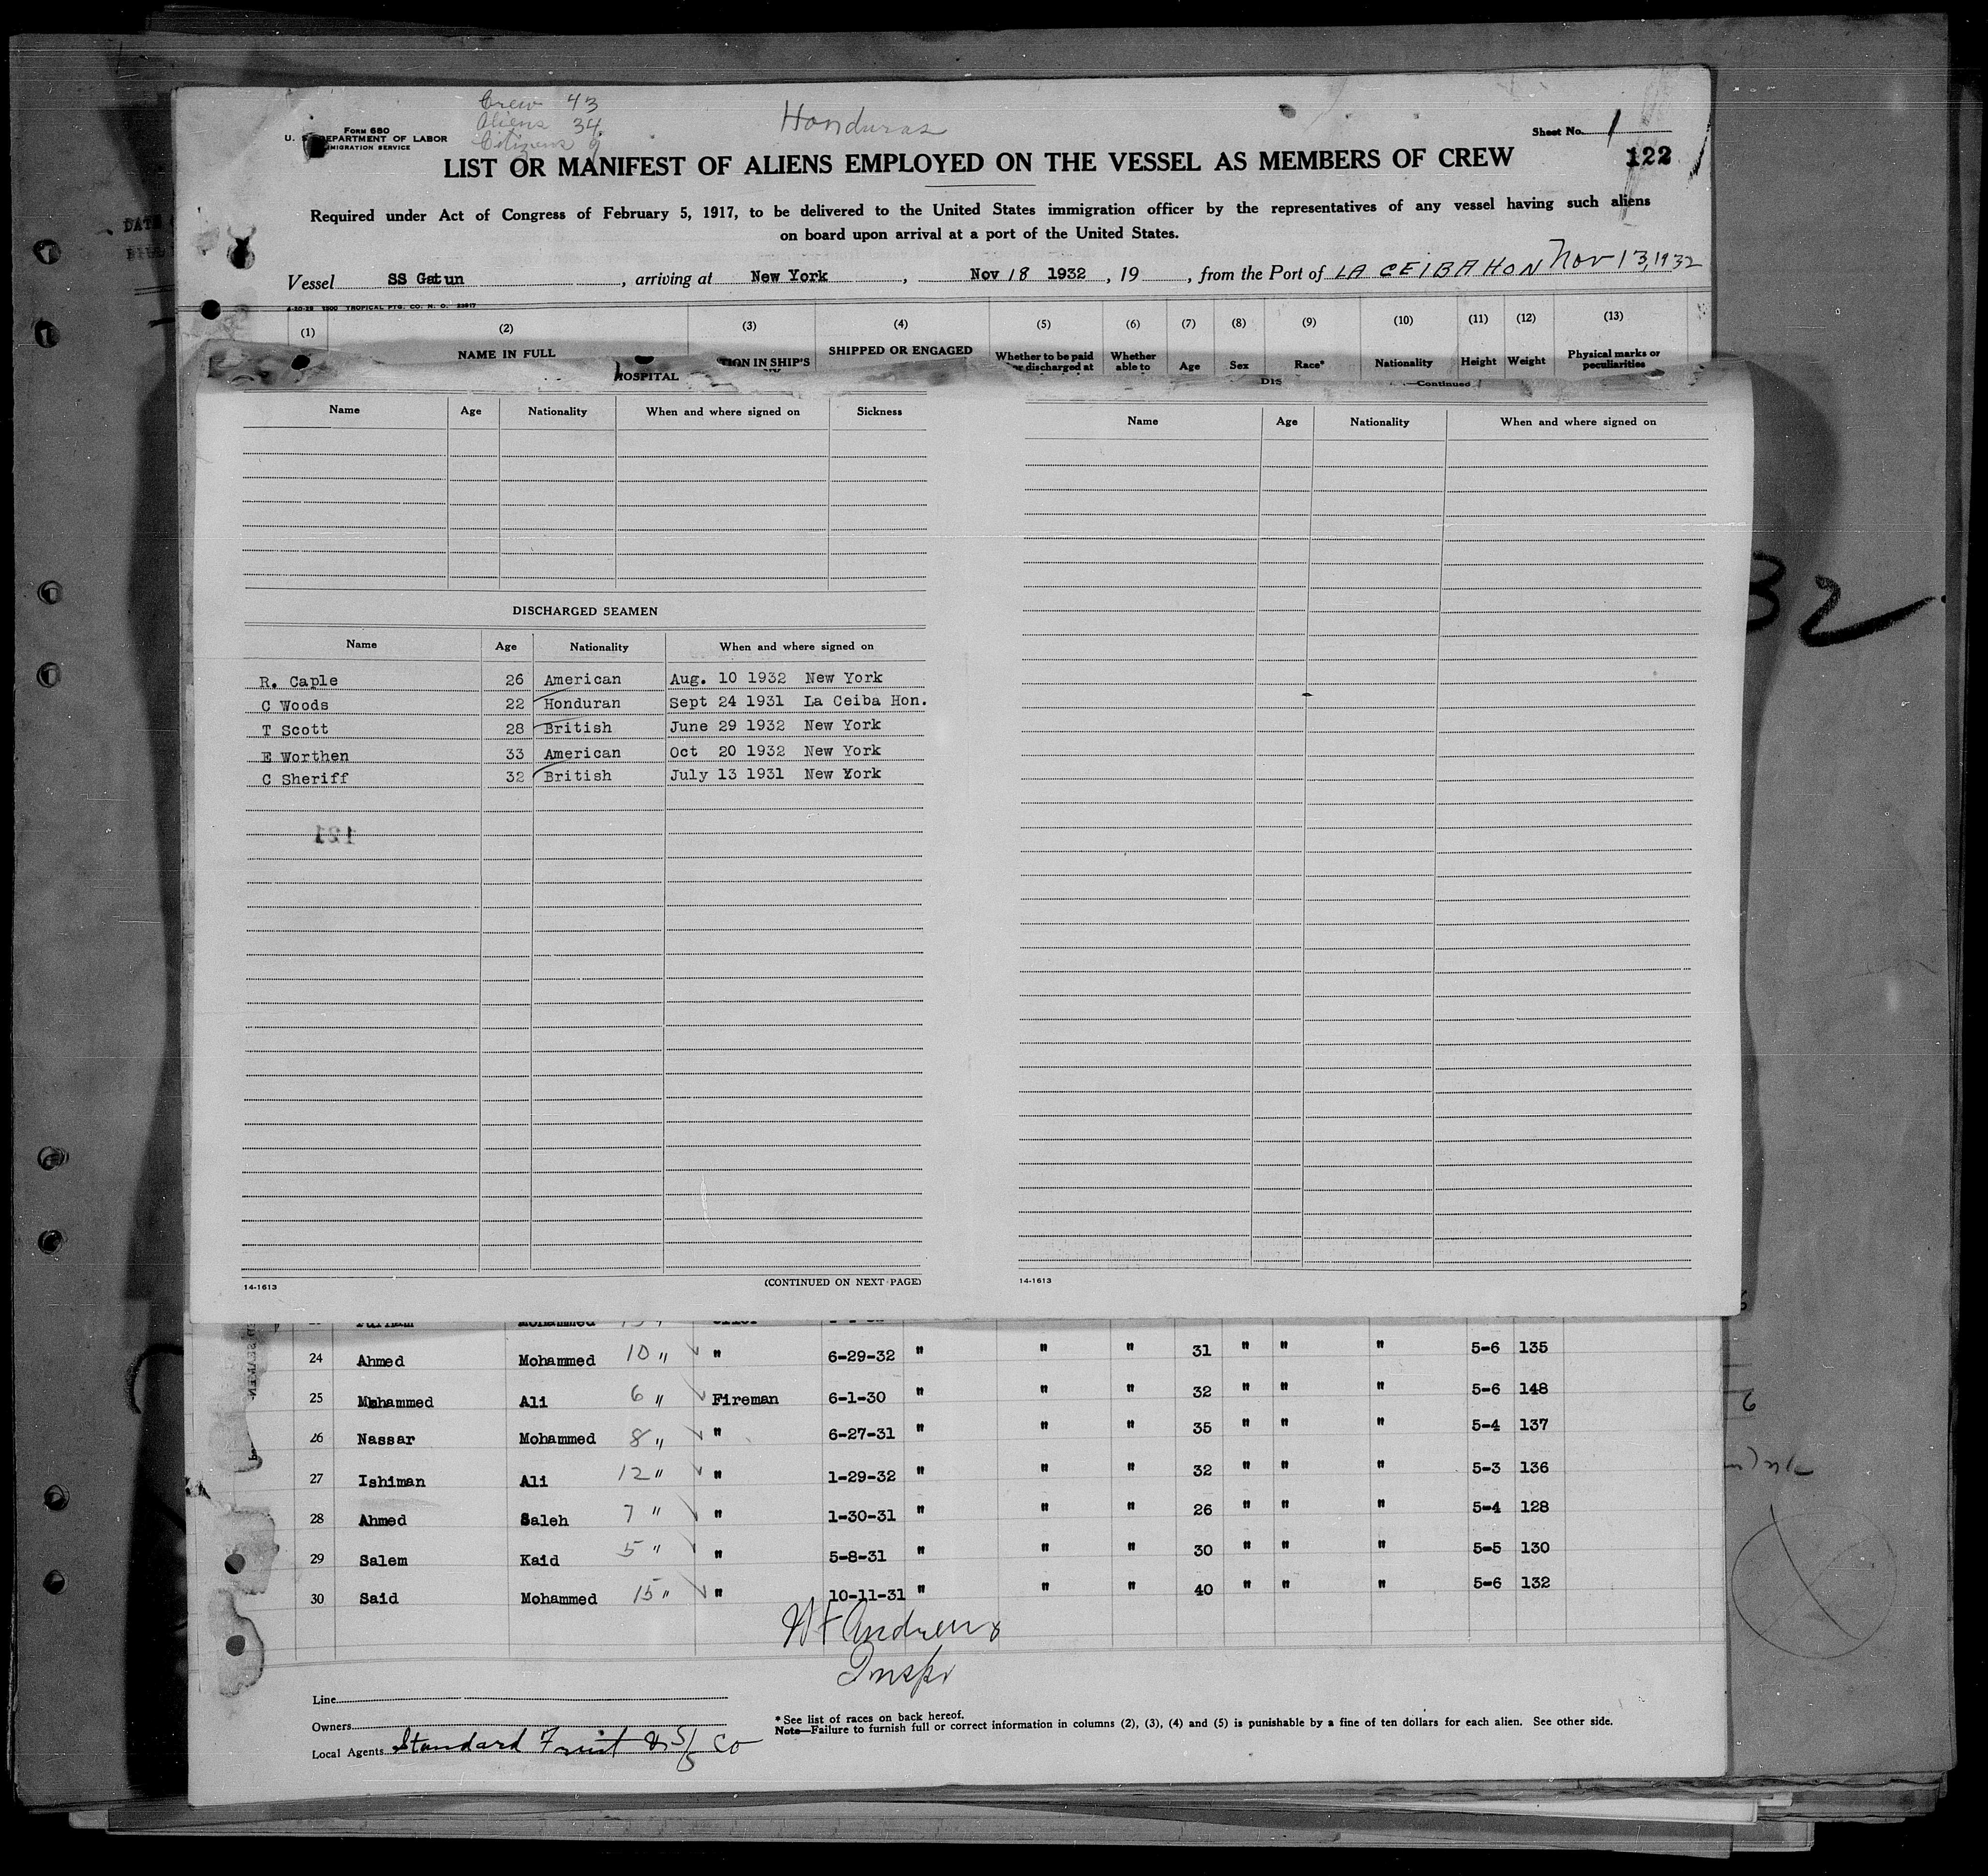 Crew 43
Aliens 34
Citizens 9
Honduras
FORM 680
U. S. DEPARTMENT OF LABOR
IMMIGRATION SERVICE
Sheet No. 1
122
LIST OR MANIFEST OF ALIENS EMPLOYED ON THE VESSEL AS MEMBERS OF CREW
Required under Act of Congress of February 5, 1917, to be delivered to the United States immigration officer by the representatives of any vessel having such aliens
on board upon arrival at a port of the United States.
Vessel SS Gatun, arriving at New York, Nov 18 1932, 19, from the Port of LA CEIBA HON Nov 13, 1932
4-20-29 1500 TROPICAL PTG. CO. N. O. 23617
(1) (2) (3) (4) (5) (6) (7) (8) (9) (10) (11) (12) (13)
NAME IN FULL TION IN SHIP'S SHIPPED OR ENGAGED Whether to be paid Whether Age Sex Race* Nationality Height Weight Physical marks or
or discharged at able to peculiarities
HOSPITAL DIS —Continued
Name Age Nationality When and where signed on Sickness
Name Age Nationality When and where signed on
DISCHARGED SEAMEN
Name Age Nationality When and where signed on
R. Caple 26 American Aug. 10 1932 New York
C Woods 22 Honduran Sept 24 1931 La Ceiba Hon.
T Scott 28 British June 29 1932 New York
E Worthen 33 American Oct 20 1932 New York
C Sheriff 32 British July 13 1931 New York
121
14-1613 (CONTINUED ON NEXT PAGE)
14-1613
32
24 Ahmed Mohammed 10 " " 6-29-32 " " " 31 " " " 5-6 135
25 Mohammed Ali 6 " Fireman 6-1-30 " " " 32 " " " 5-6 148
26 Nassar Mohammed 8 " " 6-27-31 " " " 35 " " " 5-4 137
27 Ishiman Ali 12 " " 1-29-32 " " " 32 " " " 5-3 136
28 Ahmed Saleh 7 " " 1-30-31 " " " 26 " " " 5-4 128
29 Salem Kaid 5 " " 5-8-31 " " " 30 " " " 5-5 130
30 Said Mohammed 15 " " 10-11-31 " " " 40 " " " 5-6 132
Andrews
Inspr
Line
Owners
Local Agents Standard Fruit & S/S Co
* See list of races on back hereof.
Note—Failure to furnish full or correct information in columns (2), (3), (4) and (5) is punishable by a fine of ten dollars for each alien. See other side.